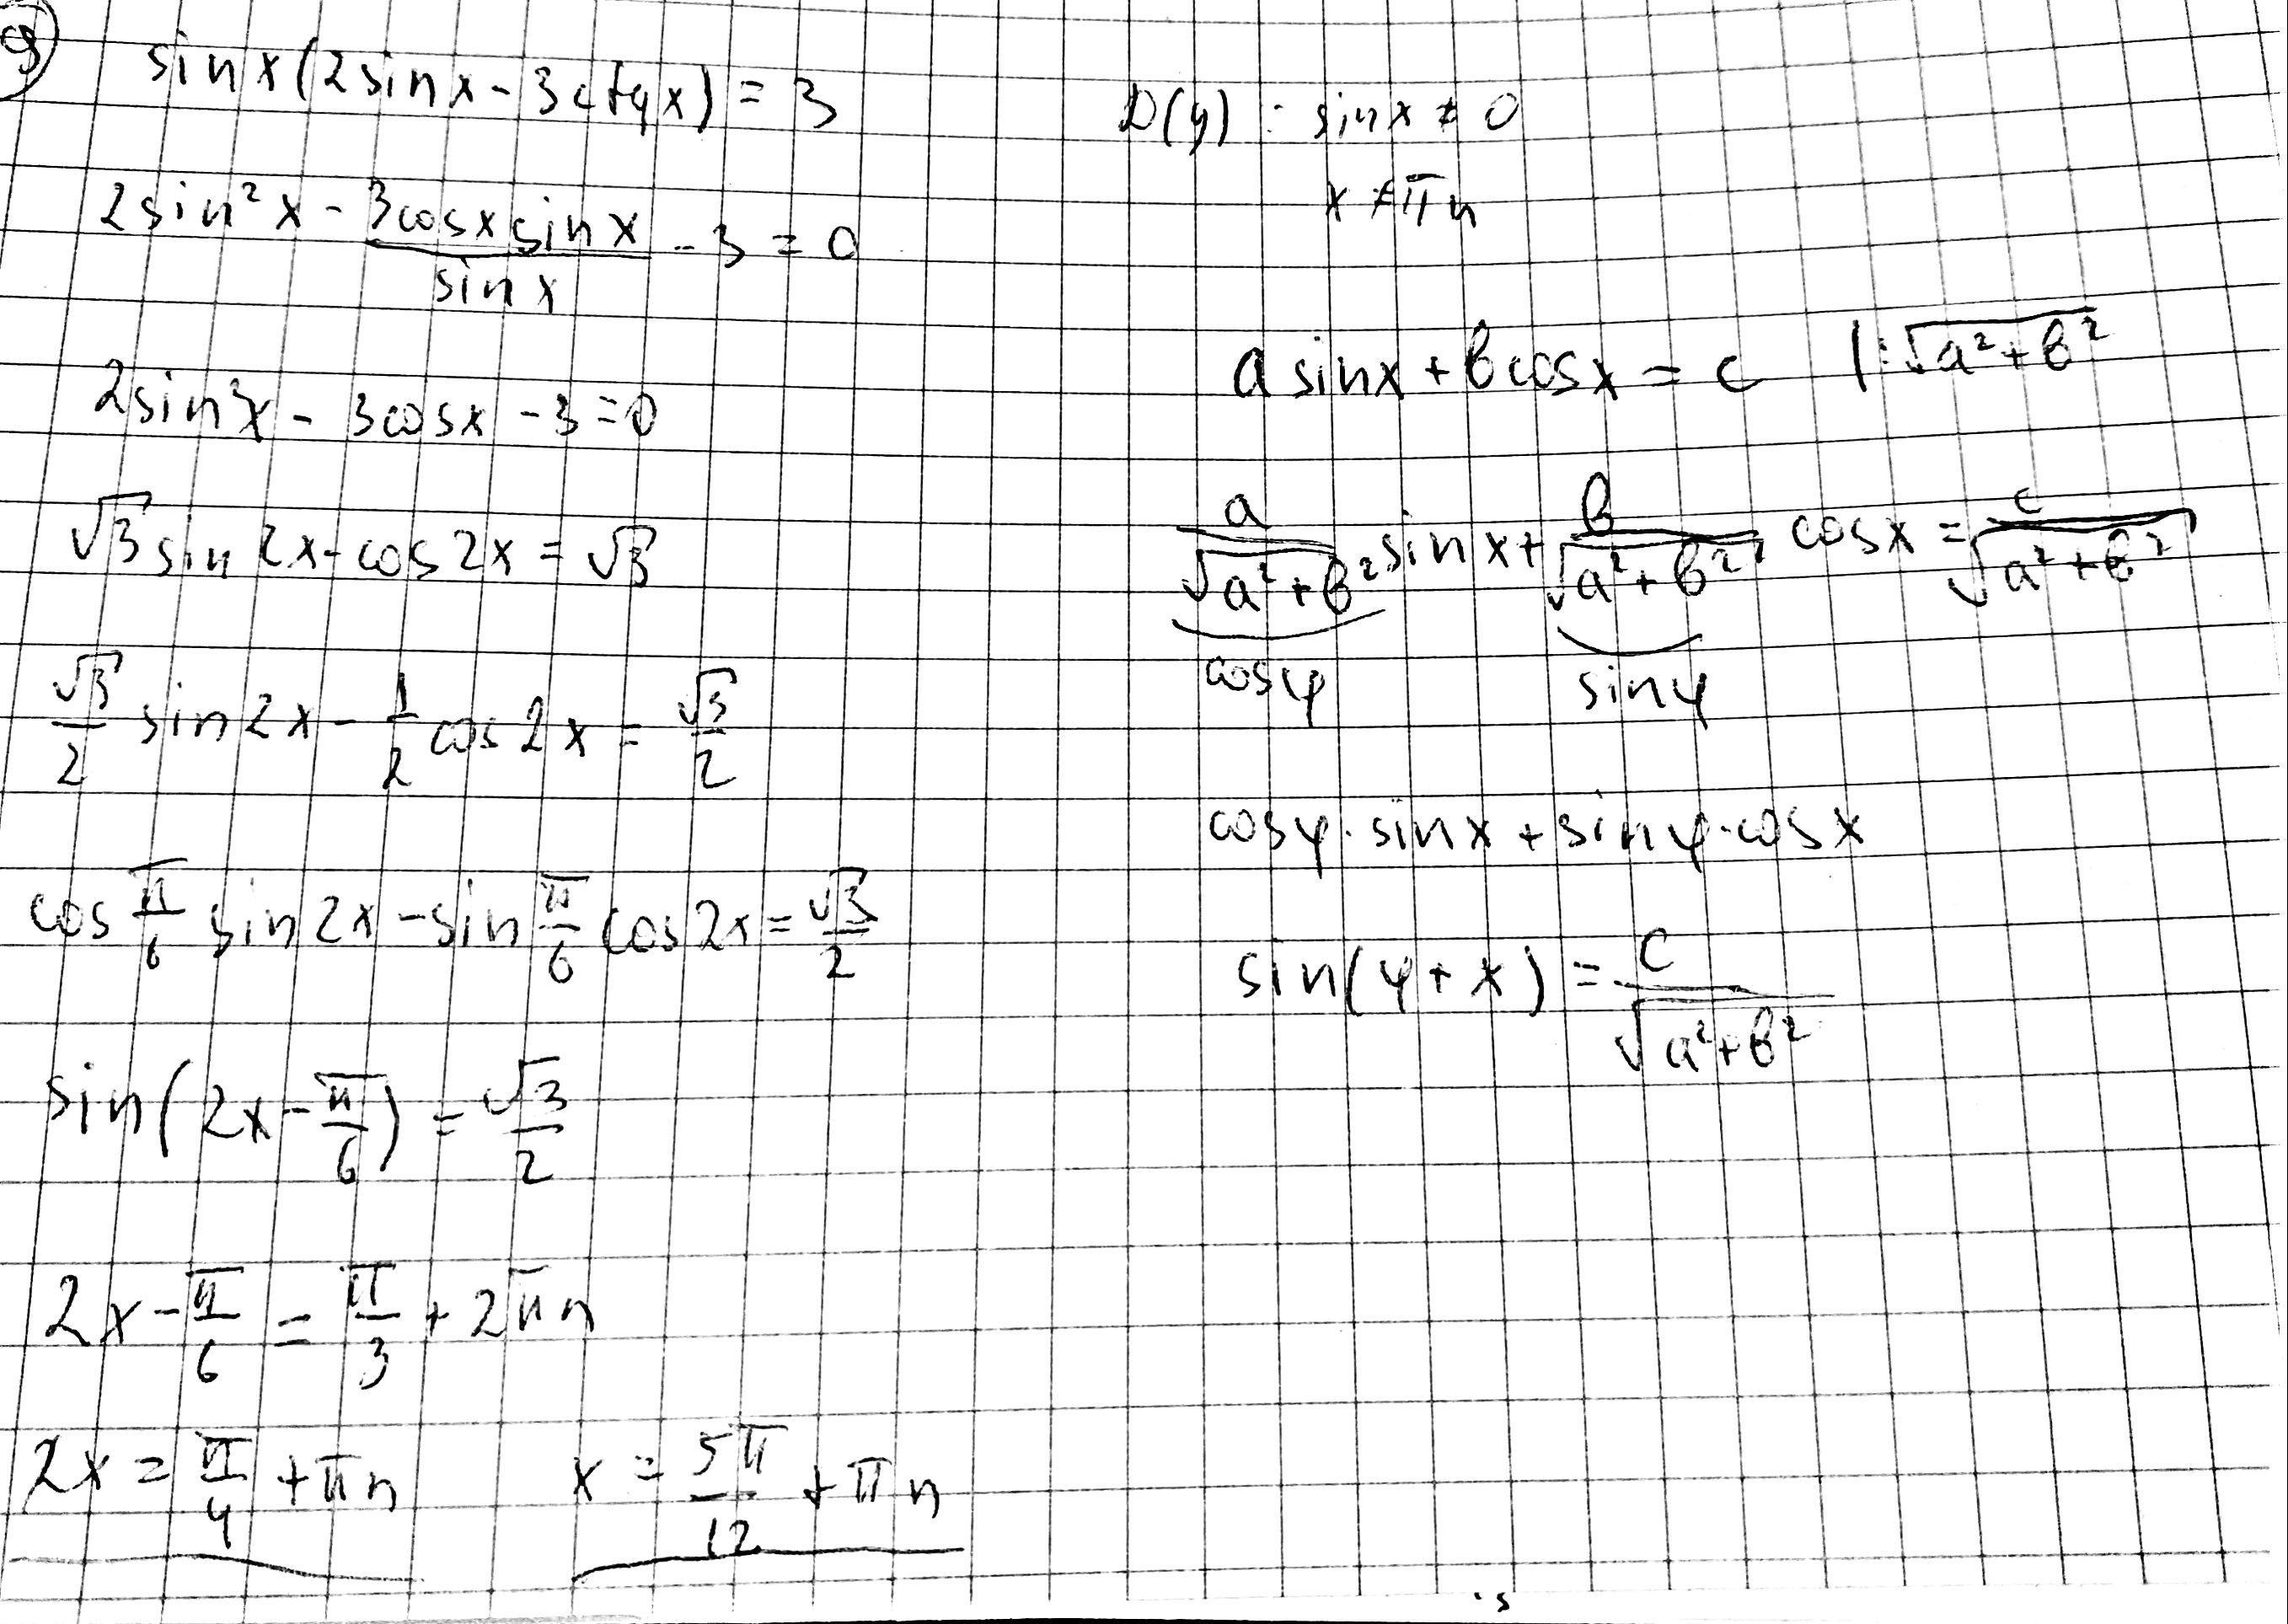 9
sin x (2 sin x - 3 ctg x) = 3
2 sin² x - 3 cos x sin x / sin x - 3 = 0
2 sin² x - 3 cos x - 3 = 0
√3 sin 2x - cos 2x = √3
√3/2 sin 2x - 1/2 cos 2x = √3/2
cos π/6 sin 2x - sin π/6 cos 2x = √3/2
sin(2x - π/6) = √3/2
2x - π/6 = π/3 + 2πn
2x = π/4 + πn    x = 5π/12 + πn
D(y) : sin x ≠ 0
x ≠ πn
a sin x + b cos x = c  | : √(a² + b²)
a/√(a² + b²) sin x + b/√(a² + b²) cos x = c/√(a² + b²)
cos φ    sin φ
cos φ · sin x + sin φ · cos x
sin(φ + x) = c/√(a² + b²)